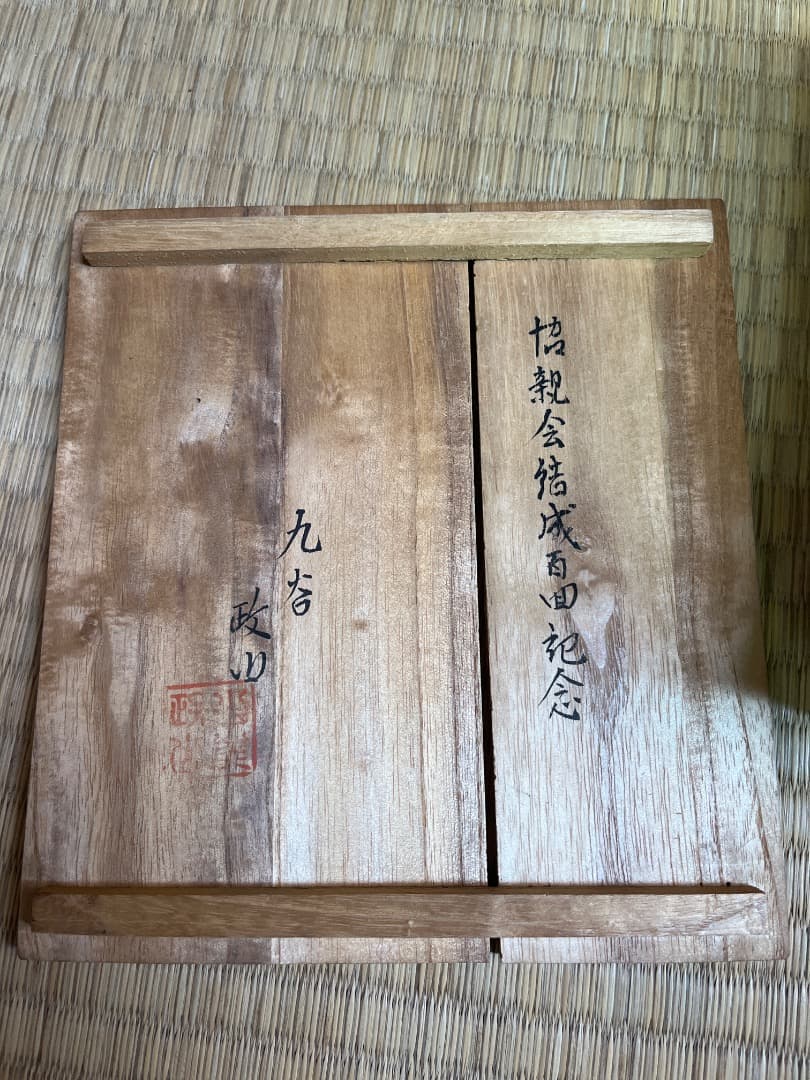 協親会結成百回記念
九谷
政山